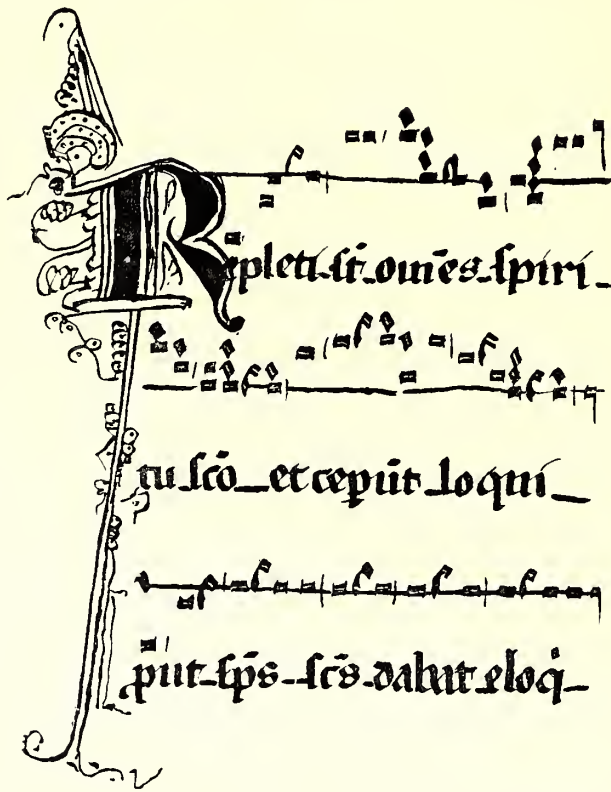 Repleti st̄ om̄es spiri
tu sc̄o et cepūt loqui
put sp̄s sc̄s dabat eloq̄